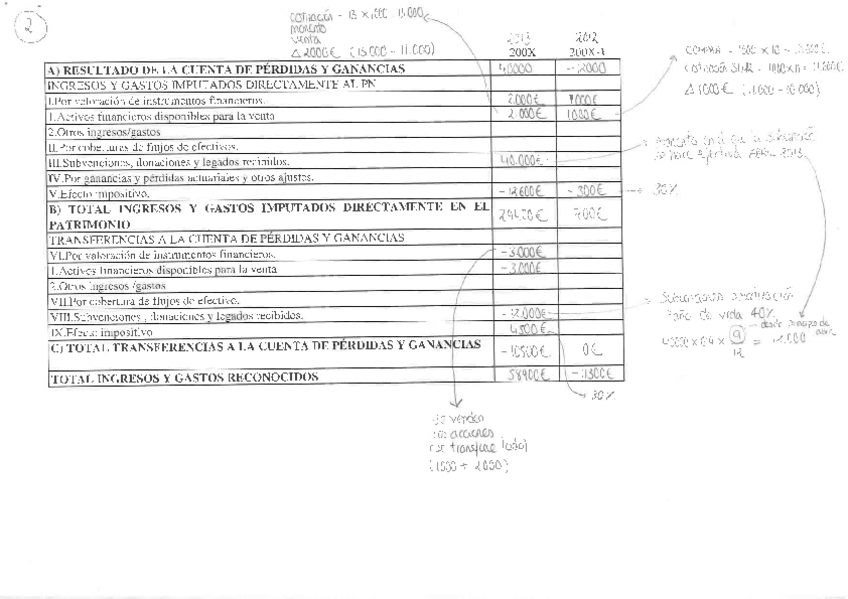 2
cotización - 13 x 1000 = 13.000
momento
venta
Δ 2000€ (13.000 - 11.000)
2013 2012
200X 200X-1
A) RESULTADO DE LA CUENTA DE PÉRDIDAS Y GANANCIAS 40000 -2000
INGRESOS Y GASTOS IMPUTADOS DIRECTAMENTE AL PN
I.Por valoración de instrumentos financieros. 2.000€ 1000€
1.Activos financieros disponibles para la venta 2.000€ 1000€
2.Otros ingresos/gastos
II.Por coberturas de flujos de efectivos.
III.Subvenciones, donaciones y legados recibidos. 40.000€
IV.Por ganancias y pérdidas actuariales y otros ajustes.
V.Efecto impositivo. -12600€ -300€ 30%
B) TOTAL INGRESOS Y GASTOS IMPUTADOS DIRECTAMENTE EN EL
PATRIMONIO 29400€ 700€
TRANSFERENCIAS A LA CUENTA DE PÉRDIDAS Y GANANCIAS
VI.Por valoración de instrumentos financieros. -3.000€
1.Activos financieros disponibles para la venta -3.000€
2.Otros ingresos/gastos
VII.Por cobertura de flujos de efectivo.
VIII.Subvenciones, donaciones y legados recibidos. -12.000€
IX.Efecto impositivo 4500€
C) TOTAL TRANSFERENCIAS A LA CUENTA DE PÉRDIDAS Y GANANCIAS -10500€ 0€
TOTAL INGRESOS Y GASTOS RECONOCIDOS 58900€ -1300€
30%
Se venden
las acciones
(se transfiere todo)
(1000 + 2000)
COMPRA - 1000 x 10 = 10.000€
cotización 31/12 - 1000 x 11 = 11.000€
Δ 1000€ (11.000 - 10.000)
Momento en el que la subvención
se hace efectiva ABRIL 2013
Subvenciones amortización
1 año de vida 40%
40000 x 0'4 x 9/12 = 12.000
desde principio de
abril